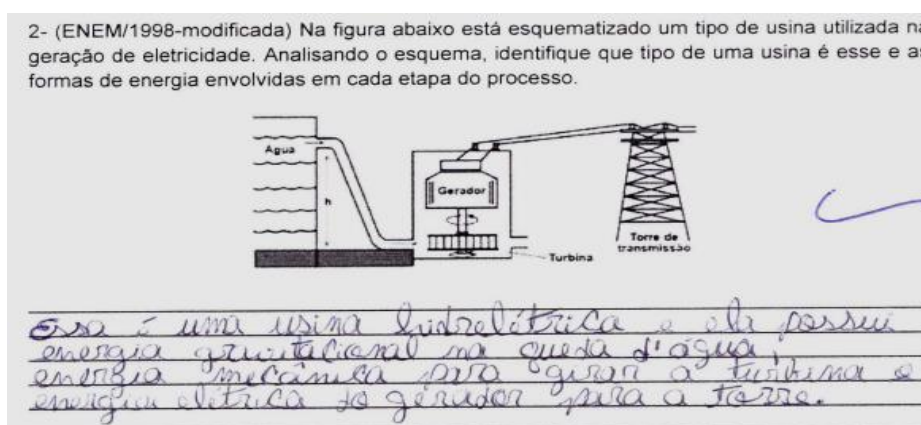 2- (ENEM/1998-modificada) Na figura abaixo está esquematizado um tipo de usina utilizada na
geração de eletricidade. Analisando o esquema, identifique que tipo de uma usina é esse e as
formas de energia envolvidas em cada etapa do processo.
Água
h
Gerador
Turbina
Torre de
transmissão
Essa é uma usina hidrelétrica e ela possui
energia gravitacional na queda d'água,
energia mecânica para girar a turbina e
energia elétrica do gerador para a torre.